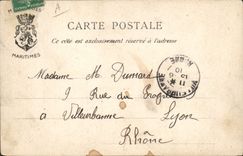 A
CARTE POSTALE
Ce côté est exclusivement réservé à l'adresse
MARITIMES
Madame M. Dumard
9 Rue du Progrès
à Villeurbanne Lyon
Rhône